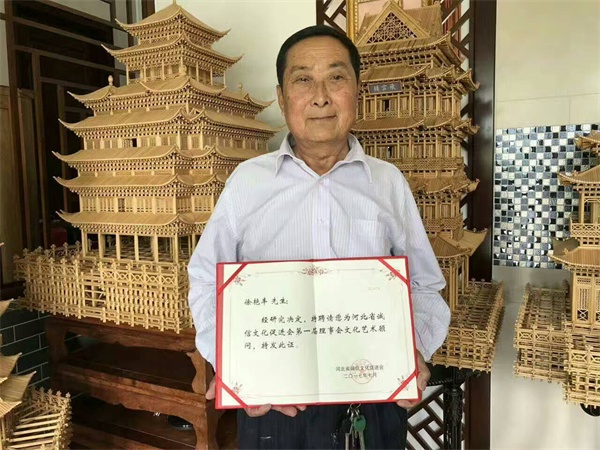 徐艳丰 先生:
经研究决定，特聘请您为河北省诚
信文化促进会第一届理事会文化艺术顾
问，特发此证。
河北省诚信文化促进会
二〇一七年七月